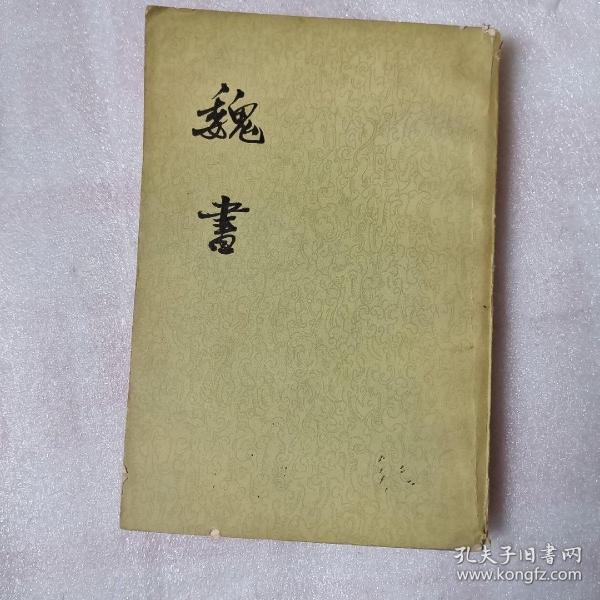 魏書
孔夫子旧書网
www.kongfz.com